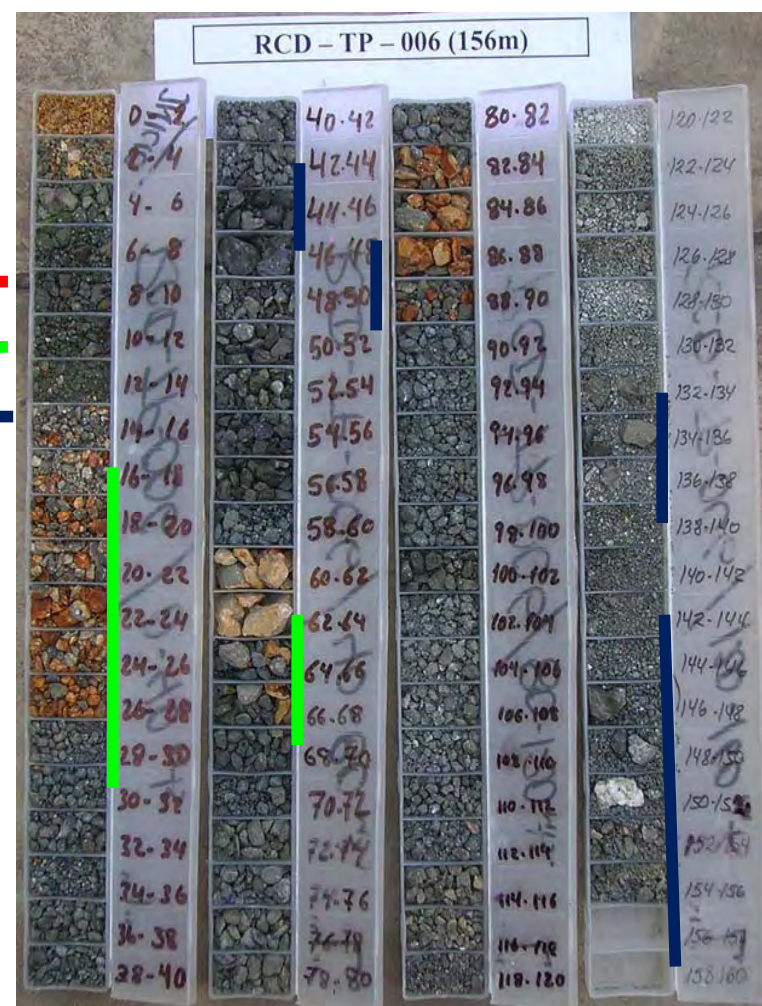 RCD – TP – 006 (156m)
4- 6
6- 8
8-10
10-12
12-14
14-16
16-18
18-20
20-22
22-24
24-26
26-28
28-30
30-32
32-34
34-36
36-38
38-40
40-42
42-44
44-46
46-48
48-50
50-52
52-54
54-56
56-58
58-60
60-62
62-64
64-66
66-68
68-70
70-72
72-74
74-76
76-78
78-80
80-82
82-84
84-86
86-88
88-90
90-92
92-94
94-96
96-98
98-100
100-102
102-104
104-106
106-108
108-110
110-112
112-114
114-116
116-118
118-120
120-122
122-124
124-126
126-128
128-130
130-132
132-134
134-136
136-138
138-140
140-142
142-144
144-146
146-148
148-150
150-152
152-154
154-156
158-160